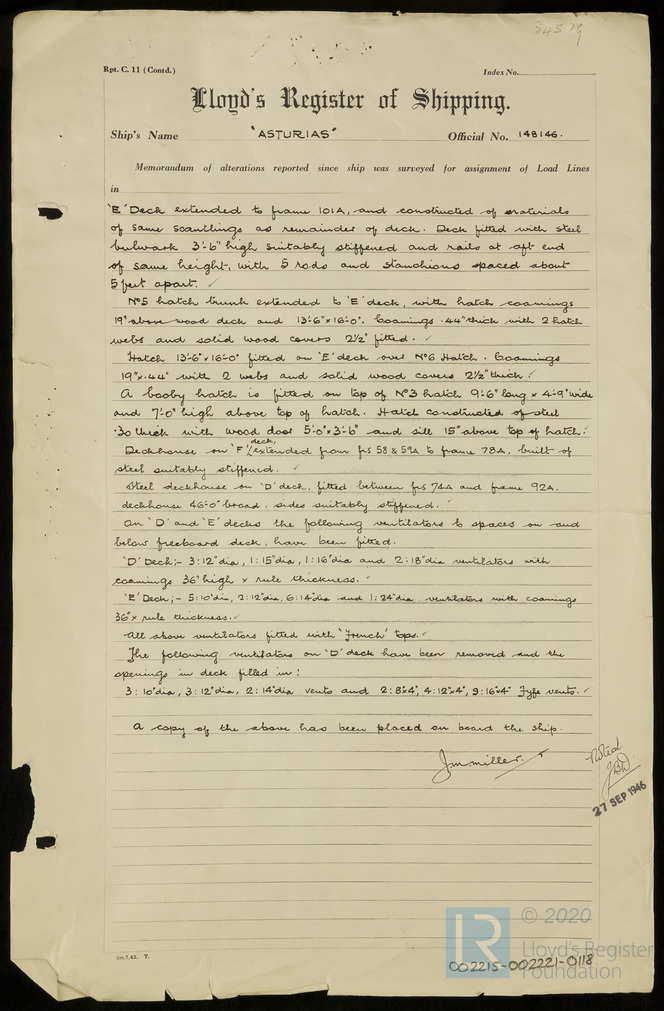 34579
Rpt. C. 11 (Contd.)
Index No.
Lloyd's Register of Shipping.
Ship's Name "ASTURIAS" Official No. 148146.
Memorandum of alterations reported since ship was surveyed for assignment of Load Lines
in
'E' Deck extended to frame 101A, and constructed of materials
of same scantlings as remainder of deck. Deck fitted with steel
bulwark 3'-6" high suitably stiffened and rails at aft end
of same height, with 5 rods and stanchions spaced about
5 feet apart. ✓
Nº5 hatch trunk extended to 'E' deck, with hatch coamings
19" above wood deck and 13'-6" x 16'-0". Coamings .44" thick with 2 hatch
webs and solid wood covers 2½" fitted. ✓
Hatch 13'-6" x 16'-0" fitted on 'E' deck over Nº6 Hatch. Coamings
19" x .44" with 2 webs and solid wood covers 2½" thick. ✓
A booby hatch is fitted on top of Nº3 hatch 9'-6" long x 4'-9" wide
and 7'-0" high above top of hatch. Hatch constructed of steel
.30 thick with wood door 5'-0" x 3'-6" and sill 15" above top of hatch. ✓
Deckhouse on 'F' deck, extended from frs 58 & 59A to frame 78A, built of
steel suitably stiffened. ✓
Steel deckhouse on 'D' deck, fitted between frs 74A and frame 92A,
deckhouse 46'-0" broad, sides suitably stiffened. ✓
On 'D' and 'E' decks the following ventilators to spaces on and
below freeboard deck, have been fitted.
'D' Deck;- 3:12" dia, 1:15" dia, 1:16" dia and 2:18" dia ventilators with
coamings 36" high x rule thickness. ✓
'E' Deck;- 5:10" dia, 2:12" dia, 6:14" dia and 1:24" dia ventilators with coamings
36" x rule thickness. ✓
All above ventilators fitted with 'French' tops. ✓
The following ventilators on 'D' deck have been removed and the
openings in deck filled in:
3:10" dia, 3:12" dia, 2:14" dia vents and 2:8"x4", 4:12"x4", 9:16"x4" Fyfe vents. ✓
A copy of the above has been placed on board the ship.
J M Miller.
Noted
27 SEP 1946
2m.7.42. T.
LR
© 2020
Lloyd's Register
Foundation
002215-002221-0118